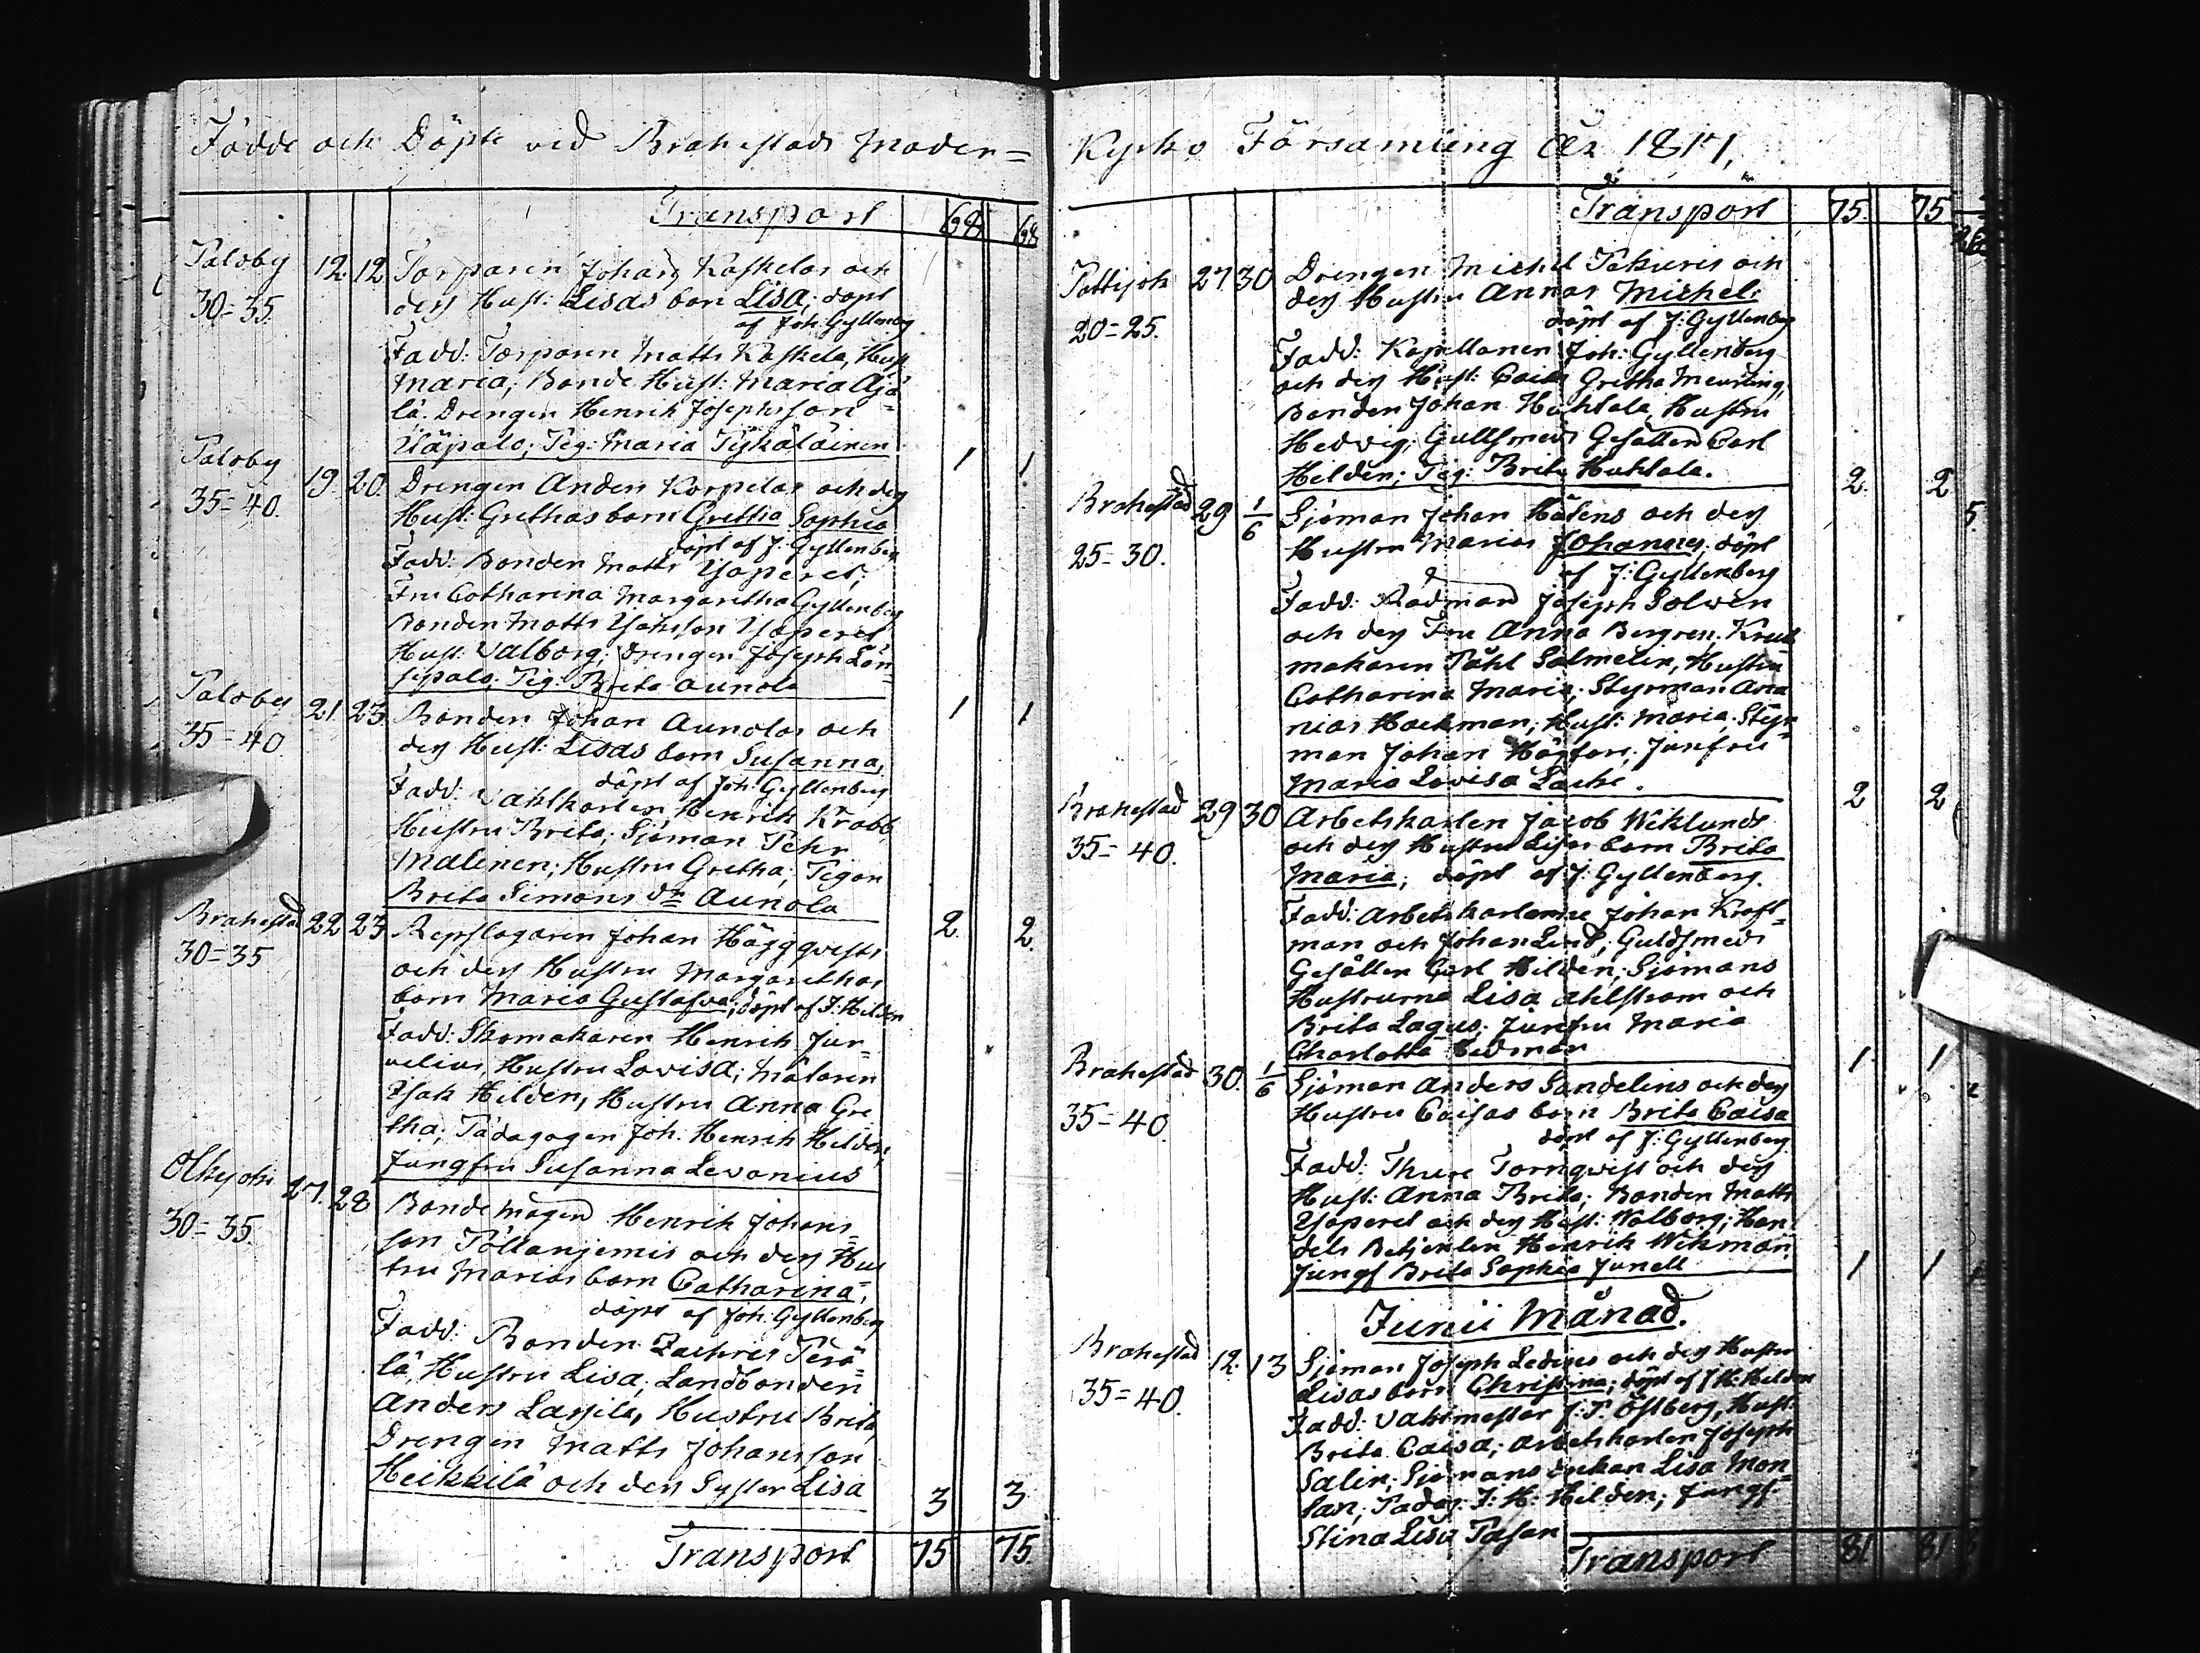 Födde och Döpte vid Brahestads Moder=
Transport 68 68
Paloby 12. 12 Torparen Johan Koskelas och
30=35. dess Hust: Lisas barn Lisa; döpt
af Joh: Gyllenberg
Fadd: Torparen Matts Koskela, Hust
Maria; Bonde Hust: Maria Ojä=
lä. Drengen Henrik Josephsson
Pig: Maria Tykäläinen 1 1
Paloby 19. 20. Drengen Anders Korpelas och dess
35=40. Hust: Grethas barn Gretha Sophia
döpt af J: Gyllenberg
Fadd: Bonden Matts Yoperet:
Fru Catharina Margaretha Gyllenberg
Bonden Matts Yoperet
Hust: Valborg; Drengen Joseph Län=
sipalo; Pig: Brita Aunola 1 1
Paloby 21. 23. Bonden Johan Aunolas och
35=40 dess Hust: Lisas barn Susanna,
döpt af Joh: Gyllenberg
Fadd: Vahlkarlen Henrik Krabb
Hustru Brita; Sjöman Pehr
Malinen; Hustru Gretha; Pigan
Brita Simons dr Aunola 2. 2.
Brahestad 22 23 Repslagaren Johan Häggqvists
30=35 och dess Hustru Margarethas
barn Maria Gustafva; döpt af J: Hilden
Fadd: Skomakaren Henrik Jur=
velius, Hustru Lovisa; Målaren
Isak Hilden, Hustru Anna Gre
tha; Pädagogen Joh. Henrik Hilden,
Jungfru Susanna Levonius
Olkijoki 27. 28 Bondemågen Henrik Johans=
30=35. son Pöllänjemis och dess Hus
tru Marias barn Catharina;
döpt af Joh: Gyllenberg
Fadd: Bonden Zachris Perä=
lä, Hustru Lisa; Landbonden
Anders Lassila, Hustru Brita,
Drengen Matts Johansson
Heikkilä och dess Syster Lisa 3 3
Transport 75 75.
Kyrko Församling År 1817,
Transport 75. 75
Pattijoki 27. 30 Drengen Michel Pekuris och
20=25. dess Hustru Annas Michel;
döpt af J: Gyllenberg
Fadd: Kapellanen Joh: Gyllenberg
och dess Hust: Caisa Gretha Meurling,
Bonden Johan Huhtala, Hustru
Hedvig; Gullsmeds Gesällen Carl
Helden; Pig: Brita Huhtala. 2. 2
Brahestad 29 1/6 Sjöman Johan Häléns och dess
25=30. Hustru Marias Johannes; döpt
af J: Gyllenberg
Fadd: Rådman Joseph Solvén
och dess Fru Anna Bergren. Kruk
makaren Påhl Salmelin, Hustru
Catharina Maria; Styrman Ana
nias Hackman, Hust: Maria. Styr=
man Johan Högfors; Junfru
Maria Lovisa Lache. 2 2
Brahestad 29 30 Arbetskarlen Jacob Wiklunds
35=40. och dess Hustru Lisas barn Brita
Maria; döpt af J: Gyllenberg.
Fadd: Arbetskarlarne Johan Kraft=
man och Johan Lind; Guldsmeds
Gesällen Carl Hildén; Sjömans
Hustrurna Lisa Ahlstrom och
Brita Lagus; Junfru Maria
Charlotta Hedman 1 1
Brahestad 30. 1/6 Sjöman Anders Sandelins och dess
35=40. Hustru Caisas barn Brita Caisa
döpt af J: Gyllenberg
Fadd: Thure Tornqvist och dess
Hust: Anna Brita; Bonden Matts
Yoperet och dess Hust: Walborg; Han
dels Betjenten Henrik Wikman
Jungf Brita Sophia Junell 1 1
Junii Månad.
Brahestad 12. 13 Sjöman Joseph Ledins och dess Hustru
35=40. Lisas barn Christina; döpt af J H: Hilden
Fadd: Vaktmester J: P. Östberg, Hust:
Brita Caisa; Arbetskarlen Joseph
Salin; Sjömans Enkan Lisa Mon=
san; Padag: J: H: Hilden; Jungf:
Stina Lisa Pasan
Transport 81 81